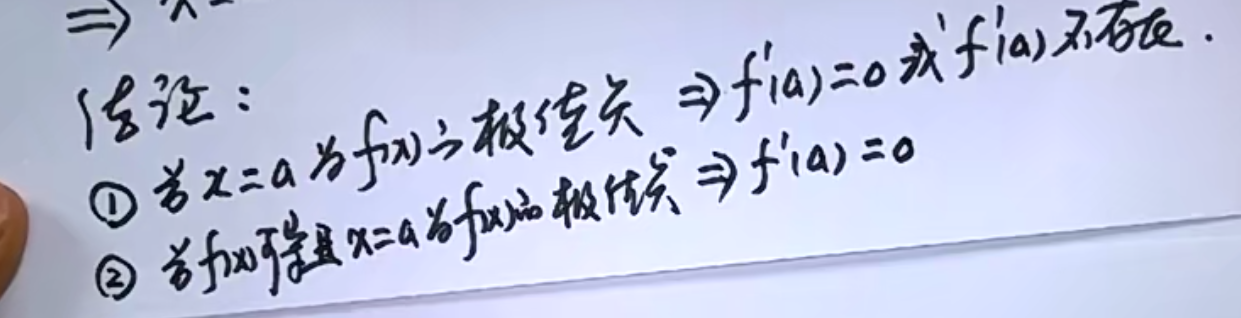 ⇒ x
结论：
① 若x=a为f(x)之极值点 ⇒ f'(a)=0 或 f'(a) 不存在.
② 若f(x)可导且x=a为f(x)的极值点 ⇒ f'(a)=0